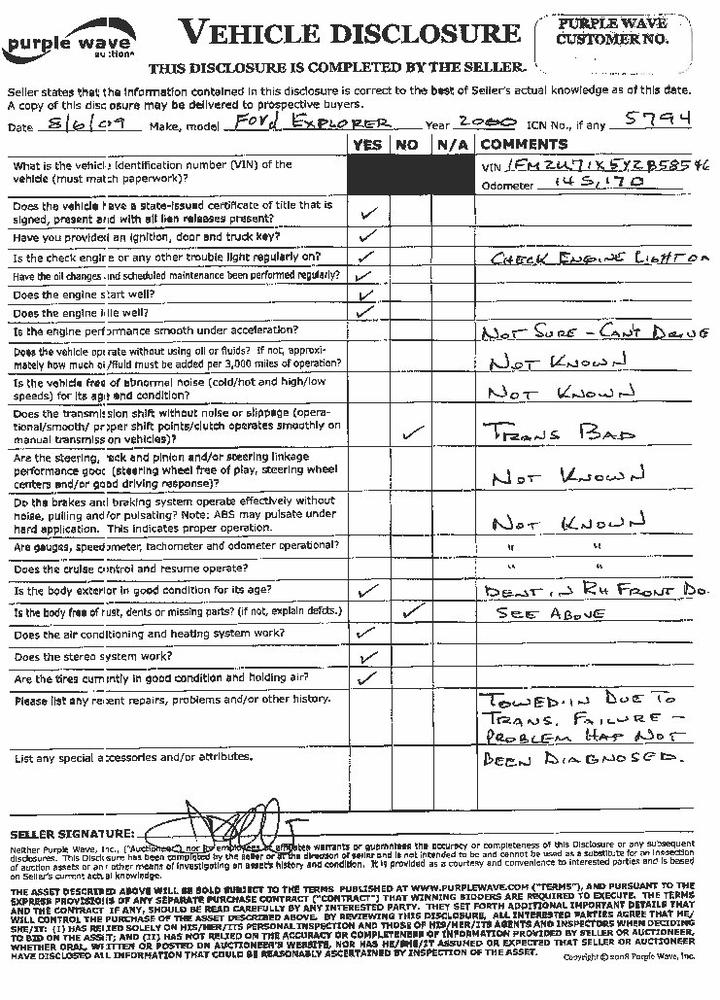 purple wave
auction
VEHICLE DISCLOSURE
PURPLE WAVE
CUSTOMER NO.
THIS DISCLOSURE IS COMPLETED BY THE SELLER.
Seller states that the information contained in this disclosure is correct to the best of Seller's actual knowledge as of this date.
A copy of this disclosure may be delivered to prospective buyers.
Date 8/6/09 Make, model Ford EXPLORER Year 2000 ICN No., if any 5794
YES NO N/A COMMENTS
What is the vehicle identification number (VIN) of the
vehicle (must match paperwork)?
VIN 1FMZU71X5YZB58546
Odometer 145,170
Does the vehicle have a state-issued certificate of title that is
signed, present and with all lien releases present? ✓
Have you provided an ignition, door and truck key? ✓
Is the check engine or any other trouble light regularly on? ✓ CHECK ENGINE LIGHT ON
Have the oil changes and scheduled maintenance been performed regularly? ✓
Does the engine start well? ✓
Does the engine idle well? ✓
Is the engine performance smooth under acceleration? NOT SURE - CAN'T DRIVE
Does the vehicle operate without using oil or fluids? If not, approxi-
mately how much oil/fluid must be added per 3,000 miles of operation? NOT KNOWN
Is the vehicle free of abnormal noise (cold/hot and high/low
speeds) for its age and condition? NOT KNOWN
Does the transmission shift without noise or slippage (opera-
tional/smooth/ proper shift points/clutch operates smoothly on
manual transmission vehicles)? ✓ TRANS BAD
Are the steering, rack and pinion and/or steering linkage
performance good (steering wheel free of play, steering wheel
centers and/or good driving response)? NOT KNOWN
Do the brakes and braking system operate effectively without
noise, pulling and/or pulsating? Note: ABS may pulsate under
hard application. This indicates proper operation. NOT KNOWN
Are gauges, speedometer, tachometer and odometer operational? " "
Does the cruise control and resume operate? " "
Is the body exterior in good condition for its age? ✓ DENT IN RH FRONT DO.
Is the body free of rust, dents or missing parts? (if not, explain defects.) ✓ SEE ABOVE
Does the air conditioning and heating system work? ✓
Does the stereo system work? ✓
Are the tires currently in good condition and holding air? ✓
Please list any recent repairs, problems and/or other history. TOWED-IN DUE TO
TRANS. FAILURE -
PROBLEM HAS NOT
List any special accessories and/or attributes. BEEN DIAGNOSED.
SELLER SIGNATURE:
Neither Purple Wave, Inc., ("Auctioneer") nor its employees or affiliates warrants or guarantees the accuracy or completeness of this Disclosure or any subsequent
disclosures. This Disclosure has been completed by the seller or at the direction of seller and is not intended to be and cannot be used as a substitute for an inspection
of auction assets or any other means of investigating an asset's history and condition. It is provided as a courtesy and convenience to interested parties and is based
on Seller's current actual knowledge.
THE ASSET DESCRIBED ABOVE WILL BE SOLD SUBJECT TO THE TERMS PUBLISHED AT WWW.PURPLEWAVE.COM ("TERMS"), AND PURSUANT TO THE
EXPRESS PROVISIONS OF ANY SEPARATE PURCHASE CONTRACT ("CONTRACT") THAT WINNING BIDDERS ARE REQUIRED TO EXECUTE. THE TERMS
AND THE CONTRACT IF ANY, SHOULD BE READ CAREFULLY BY ANY INTERESTED PARTY. THEY SET FORTH ADDITIONAL IMPORTANT DETAILS THAT
WILL CONTROL THE PURCHASE OF THE ASSET DESCRIBED ABOVE. BY REVIEWING THIS DISCLOSURE, ALL INTERESTED PARTIES AGREE THAT HE/
SHE/IT: (I) HAS RELIED SOLELY ON HIS/HER/ITS PERSONAL INSPECTION AND THOSE OF HIS/HER/ITS AGENTS AND INSPECTORS WHEN DECIDING
TO BID ON THE ASSET; AND (II) HAS NOT RELIED ON THE ACCURACY OR COMPLETENESS OF INFORMATION PROVIDED BY SELLER OR AUCTIONEER,
WHETHER ORAL, WRITTEN OR POSTED ON AUCTIONEER'S WEBSITE, NOR HAS HE/SHE/IT ASSUMED OR EXPECTED THAT SELLER OR AUCTIONEER
HAVE DISCLOSED ALL INFORMATION THAT COULD BE REASONABLY ASCERTAINED BY INSPECTION OF THE ASSET.
Copyright © 2008 Purple Wave, Inc.